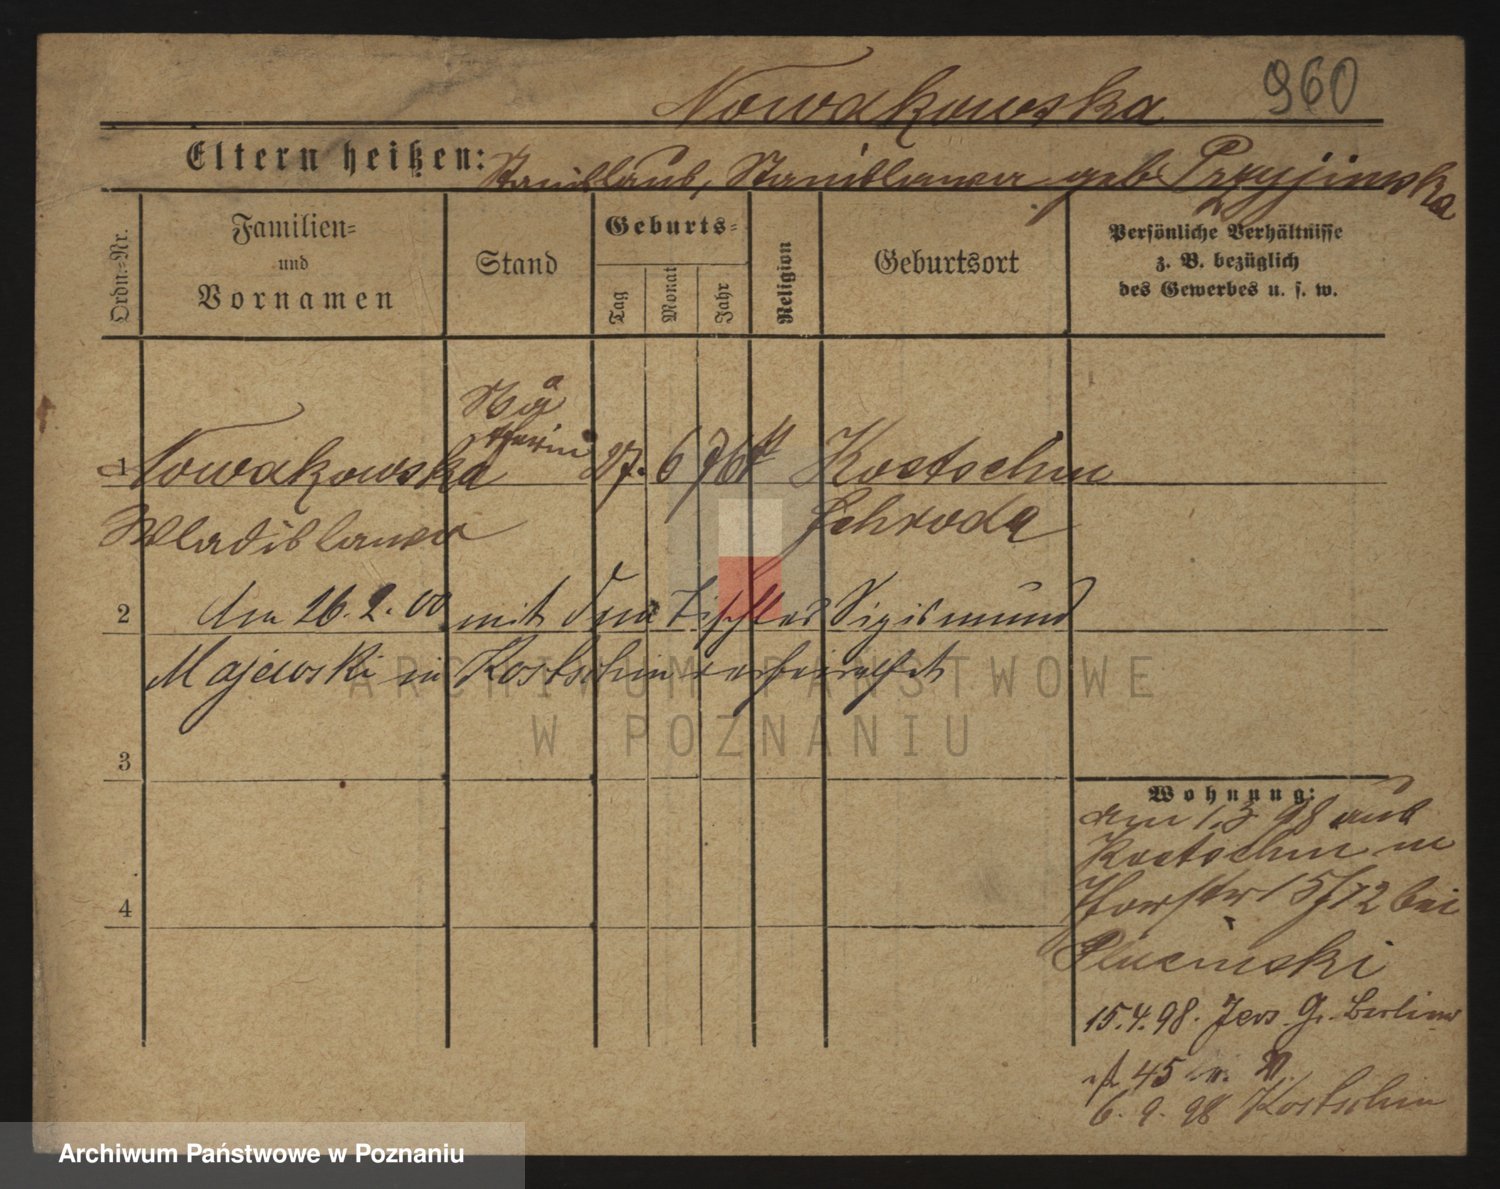 Nowakowska 960
Eltern heißen: Stanislaus, Stanislawa geb. Przyjinska
Ordn.-Nr.
Familien-
und
Vornamen
Stand
Geburts-
Tag
Monat
Jahr
Religion
Geburtsort
Persönliche Verhältnisse
z. B. bezüglich
des Gewerbes u. s. w.
1 Nowakowska 27. 6 76 k Kostschin
Wladislawa Schroda
2 den 26.2.00 mit dem Tischler Sigismund
Majewski in Kostschin verheirathet
ARCHIWUM PAŃSTWOWE
W POZNANIU
3
4
Wohnung:
den 1.3 98 aus
Kostschin in
15/12 bei
Plucinski
15.4.98. Jers. Gr. Berliner
45
6. 9. 98 Kostschin
Archiwum Państwowe w Poznaniu